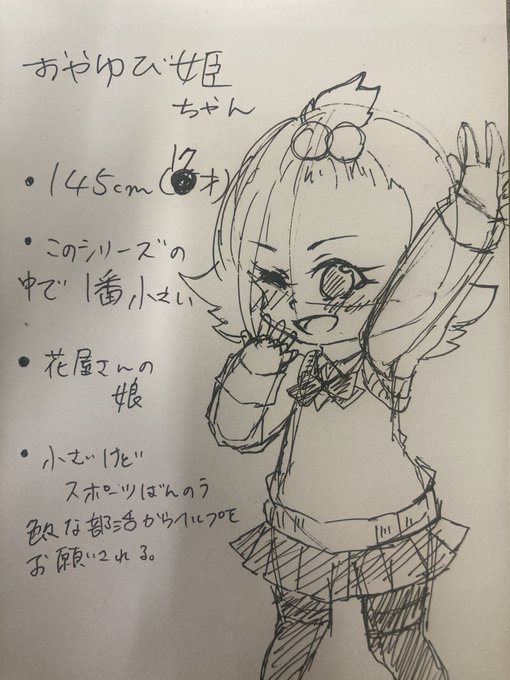 おやゆび姫
ちゃん
・145cm(17才)
・このシリーズの
中で1番小さい
・花屋さんの
娘
・小さいけど
スポーツばんのう
色々な部活からヘルプを
お願いされる。